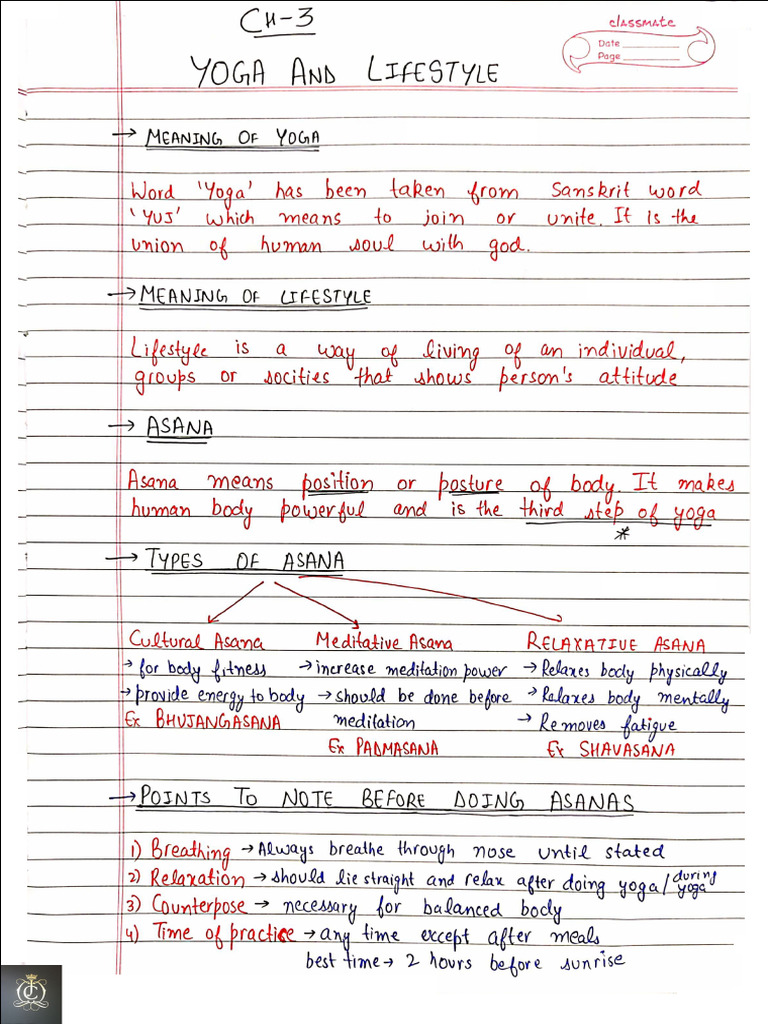 CH-3
classmate
Date
Page
YOGA AND LIFESTYLE
→ MEANING OF YOGA
Word 'Yoga' has been taken from Sanskrit word
'YUJ' which means to join or unite. It is the
union of human soul with god.
→ MEANING OF LIFESTYLE
Lifestyle is a way of living of an individual,
groups or socities that shows person's attitude
→ ASANA
Asana means position or posture of body. It makes
human body powerful and is the third step of yoga
*
→ TYPES OF ASANA
Cultural Asana Meditative Asana RELAXATIVE ASANA
→ for body fitness → increase meditation power → Relaxes body physically
→ provide energy to body → should be done before → Ralaxes body mentally
Ex BHUJANGASANA meditation → Removes fatigue
Ex PADMASANA Ex SHAVASANA
→ POINTS TO NOTE BEFORE DOING ASANAS
1) Breathing → Always breathe through nose until stated
2) Relaxation → should lie straight and relax after doing yoga/during yoga
3) Counterpose → necessary for balanced body
4) Time of practice → any time except after meals
best time → 2 hours before sunrise